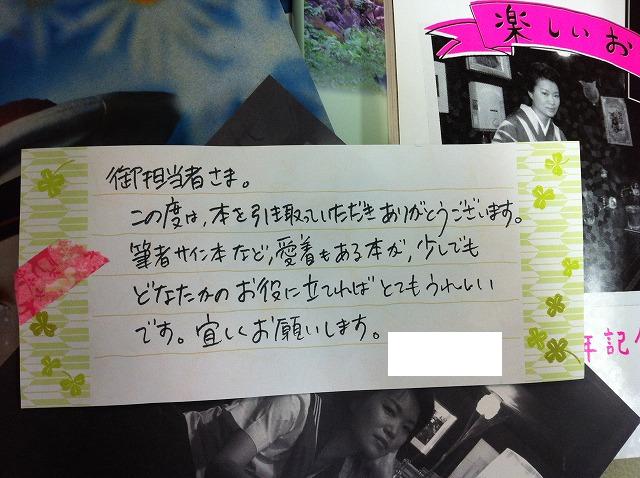 楽しいお
御担当者さま。
この度は、本を引き取っていただきありがとうございます。
筆者サイン本など、愛着もある本が、少しでも
どなたかのお役に立てればとてもうれしい
です。宜しくお願いします。
年記念